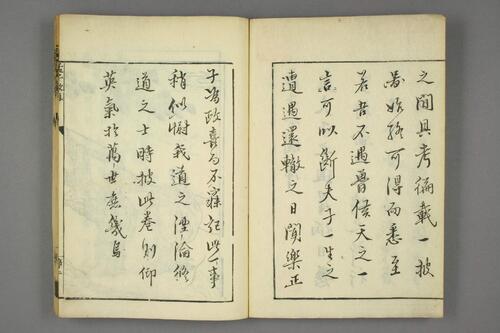 之間具考編載一披
而始終可得而悉至
若吾不遇魯侯天之一
言可以斷夫子一生之
遭遇還轍之日聞樂正
子為政喜而不寐記此一事
稍似慨我道之湮淪修
道之士時披此卷則仰
英氣於萬世庶幾焉